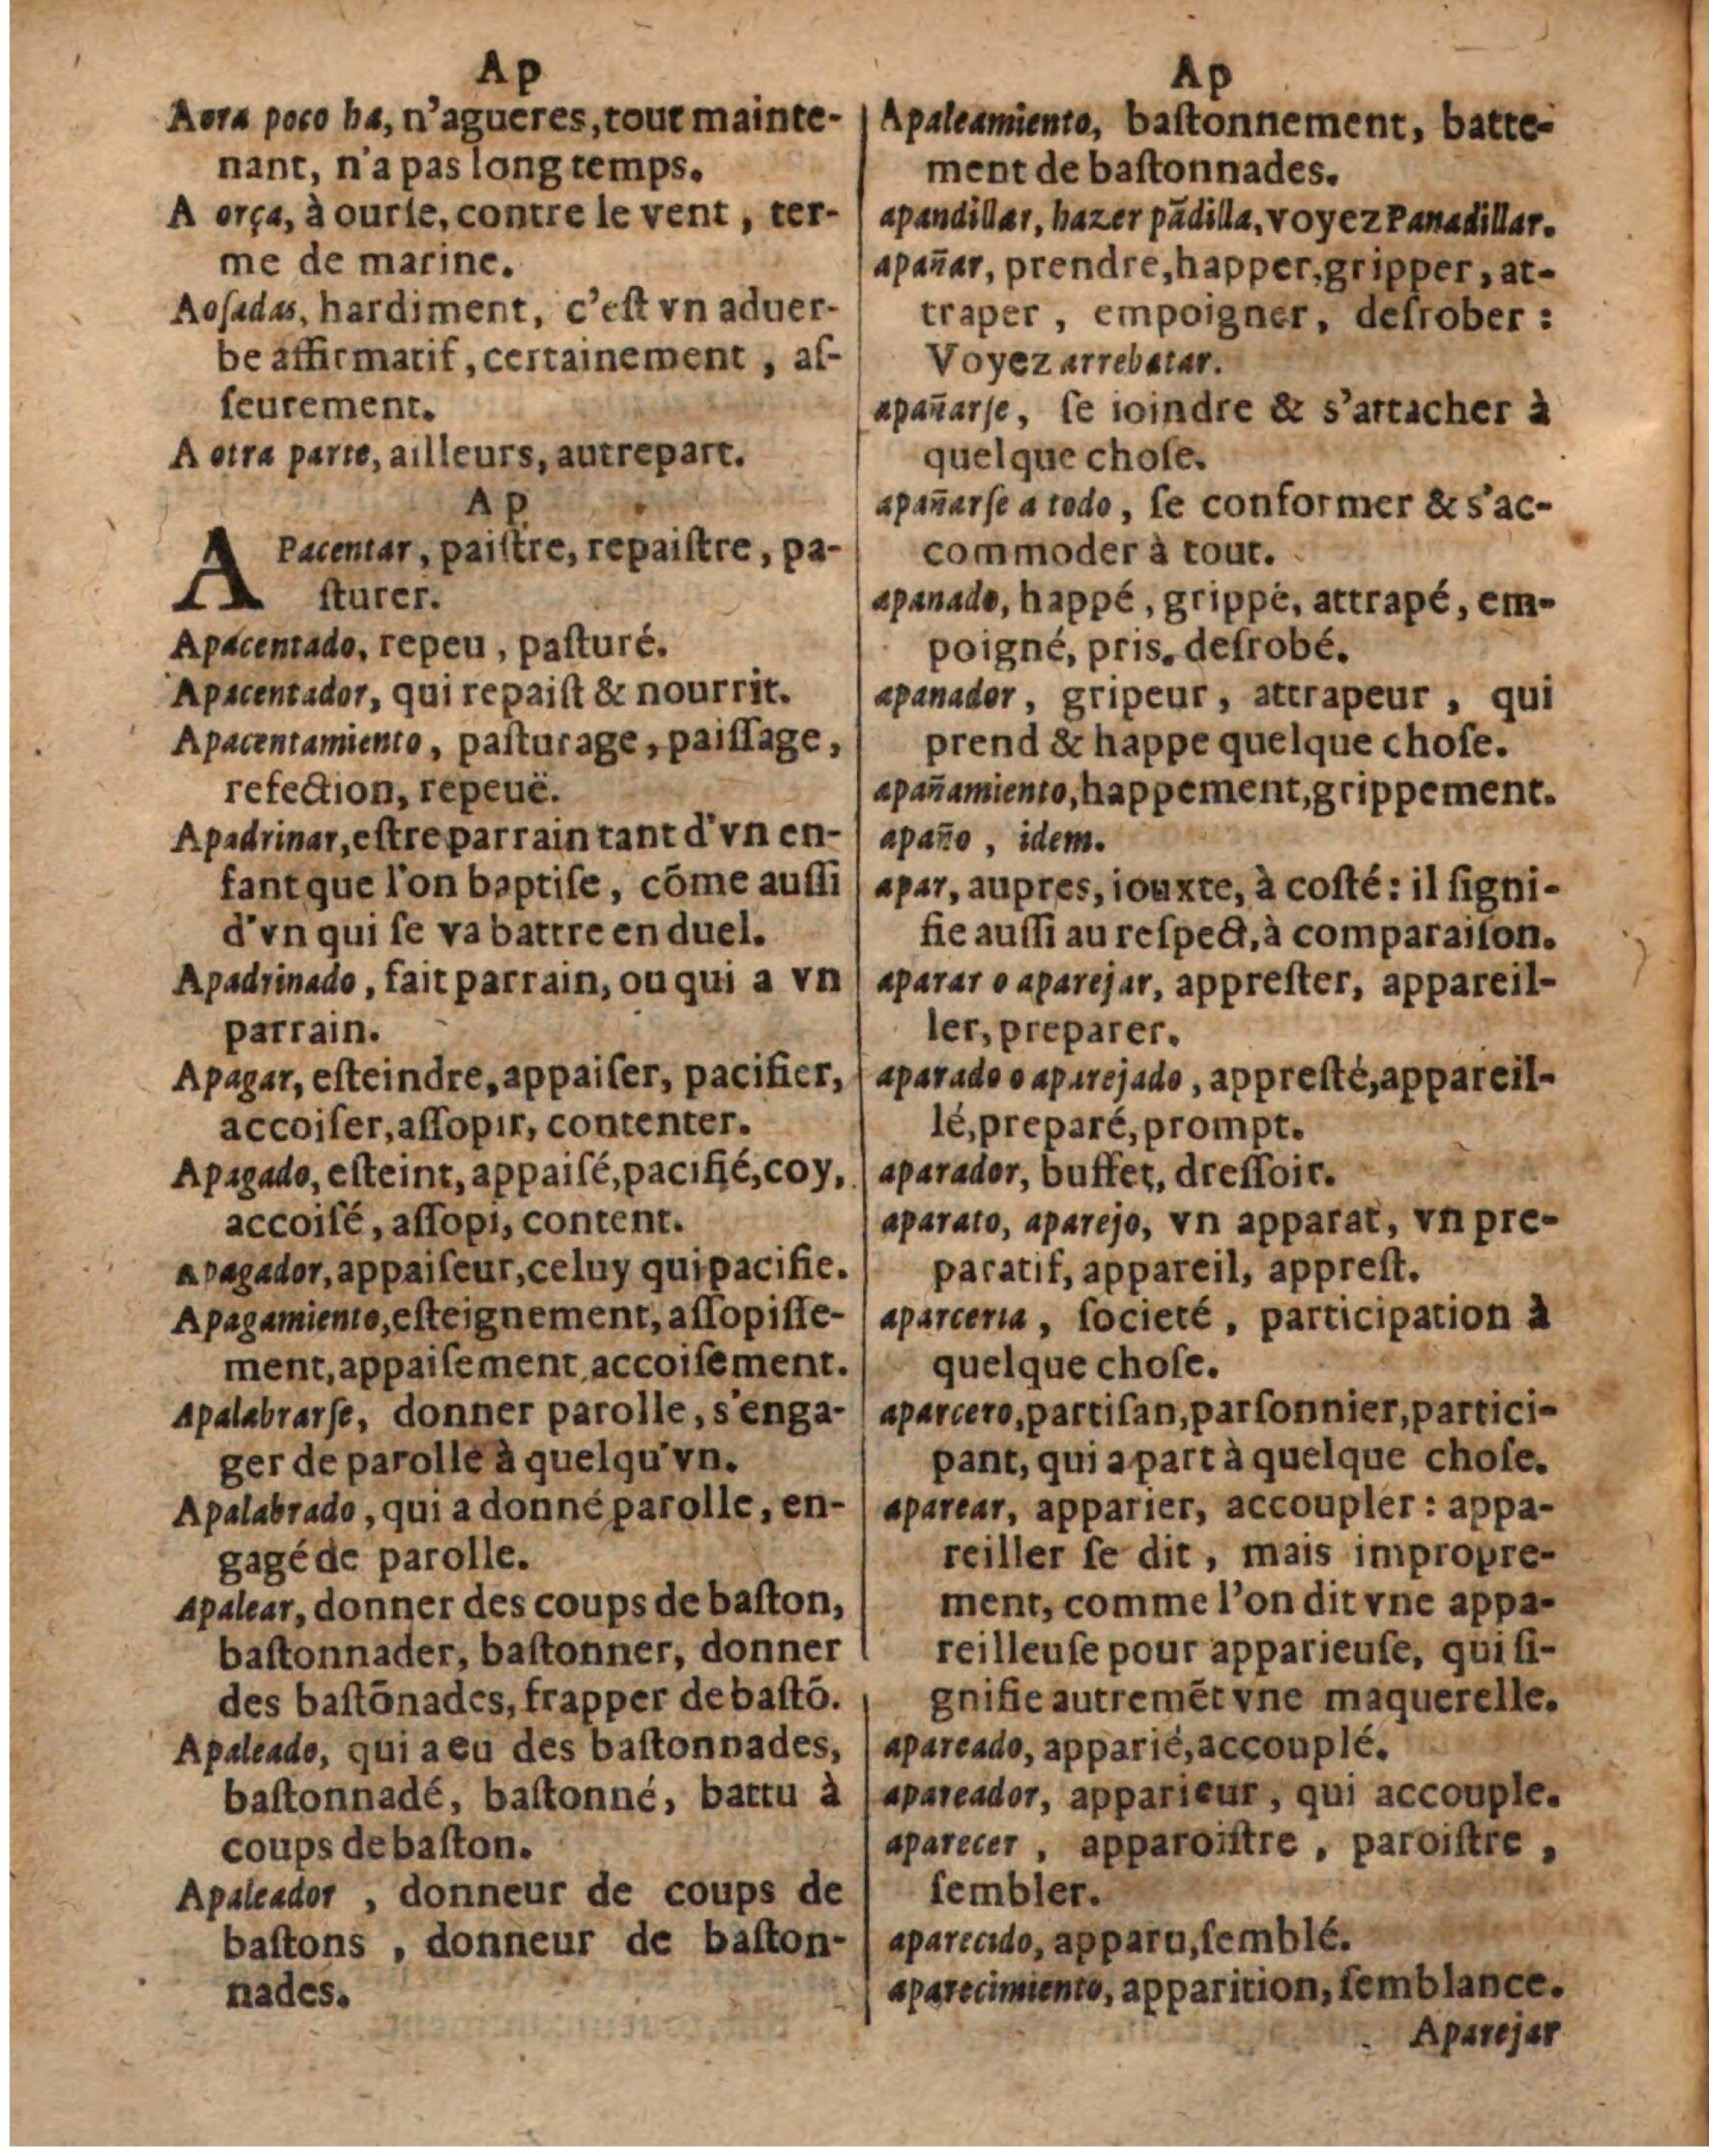 Ap
Aora poco ha, n'agueres, tout mainte-
nant, n'a pas long temps.
A orça, à ourſe, contre le vent, ter-
me de marine.
Aoſadas, hardiment, c'eſt vn aduer-
be affirmatif, certainement, aſ-
ſeurement.
A otra parte, ailleurs, autrepart.
Ap
APacentar, paiſtre, repaiſtre, pa-
ſturer.
Apacentado, repeu, paſturé.
Apacentador, qui repaiſt & nourrit.
Apacentamiento, paſturage, paiſſage,
refection, repeuë.
Apadrinar, eſtre parrain tant d'vn en-
fant que l'on baptiſe, cōme auſſi
d'vn qui ſe va battre en duel.
Apadrinado, fait parrain, ou qui a vn
parrain.
Apagar, eſteindre, appaiſer, pacifier,
accoiſer, aſſopir, contenter.
Apagado, eſteint, appaiſé, pacifié, coy,
accoiſé, aſſopi, content.
apagador, appaiſeur, celuy qui pacifie.
Apagamiento, eſteignement, aſſopiſſe-
ment, appaiſement, accoiſement.
Apalabrarſe, donner parolle, s'enga-
ger de parolle à quelqu'vn.
Apalabrado, qui a donné parolle, en-
gagé de parolle.
Apalear, donner des coups de baſton,
baſtonnader, baſtonner, donner
des baſtōnades, frapper de baſtō.
Apaleado, qui a eu des baſtonnades,
baſtonnadé, baſtonné, battu à
coups de baſton.
Apaleador, donneur de coups de
baſtons, donneur de baſton-
nades.
Ap
Apaleamiento, baſtonnement, batte-
ment de baſtonnades.
apandillar, hazer pādilla, voyez Panadillar.
apañar, prendre, happer, gripper, at-
traper, empoigner, deſrober:
Voyez arrebatar.
apañarſe, ſe ioindre & s'attacher à
quelque choſe.
apañarſe a todo, ſe conformer & s'ac-
commoder à tout.
apanado, happé, grippé, attrapé, em-
poigné, pris, deſrobé.
apanador, gripeur, attrapeur, qui
prend & happe quelque choſe.
apañamiento, happement, grippement.
apaño, idem.
apar, aupres, iouxte, à coſté: il ſigni-
fie auſſi au reſpect, à comparaiſon.
aparar o aparejar, appreſter, appareil-
ler, preparer.
aparado o aparejado, appreſté, appareil-
lé, preparé, prompt.
aparador, buffet, dreſſoir.
aparato, aparejo, vn apparat, vn pre-
paratif, appareil, appreſt.
aparceria, ſocieté, participation à
quelque choſe.
aparcero, partiſan, parſonnier, partici-
pant, qui a part à quelque choſe.
aparear, apparier, accoupler: appa-
reiller ſe dit, mais impropre-
ment, comme l'on dit vne appa-
reilleuſe pour apparieuſe, qui ſi-
gnifie autremēt vne maquerelle.
apareado, apparié, accouplé.
apareador, apparieur, qui accouple.
aparecer, apparoiſtre, paroiſtre,
ſembler.
aparecido, apparu, ſemblé.
aparecimiento, apparition, ſemblance.
Aparejar